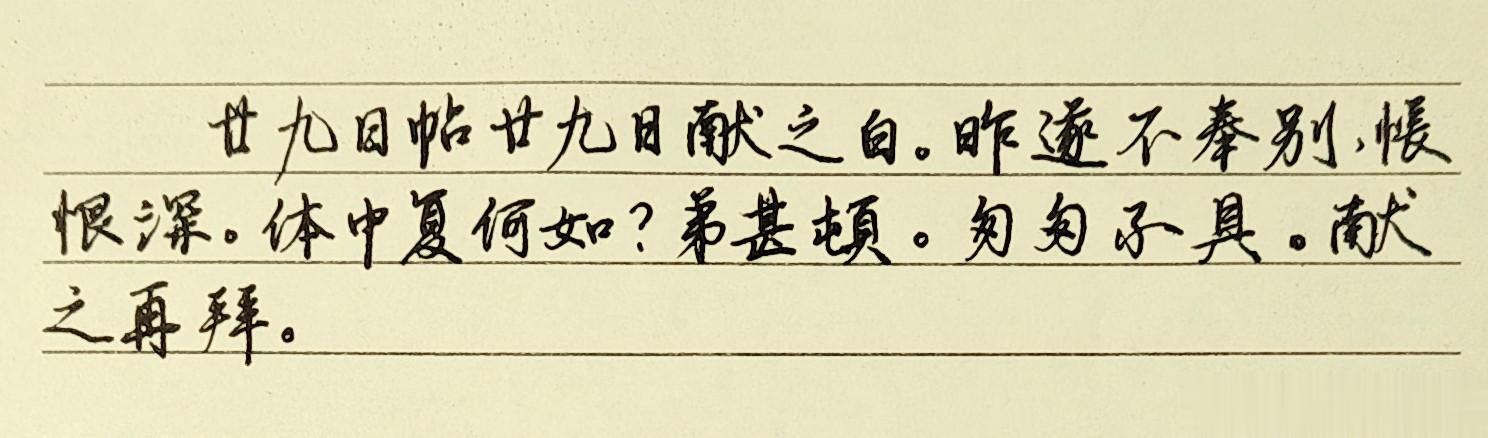 廿九日帖廿九日献之白。昨遂不奉别、怅
恨深。体中复何如？弟甚顿。匆匆不具。献
之再拜。